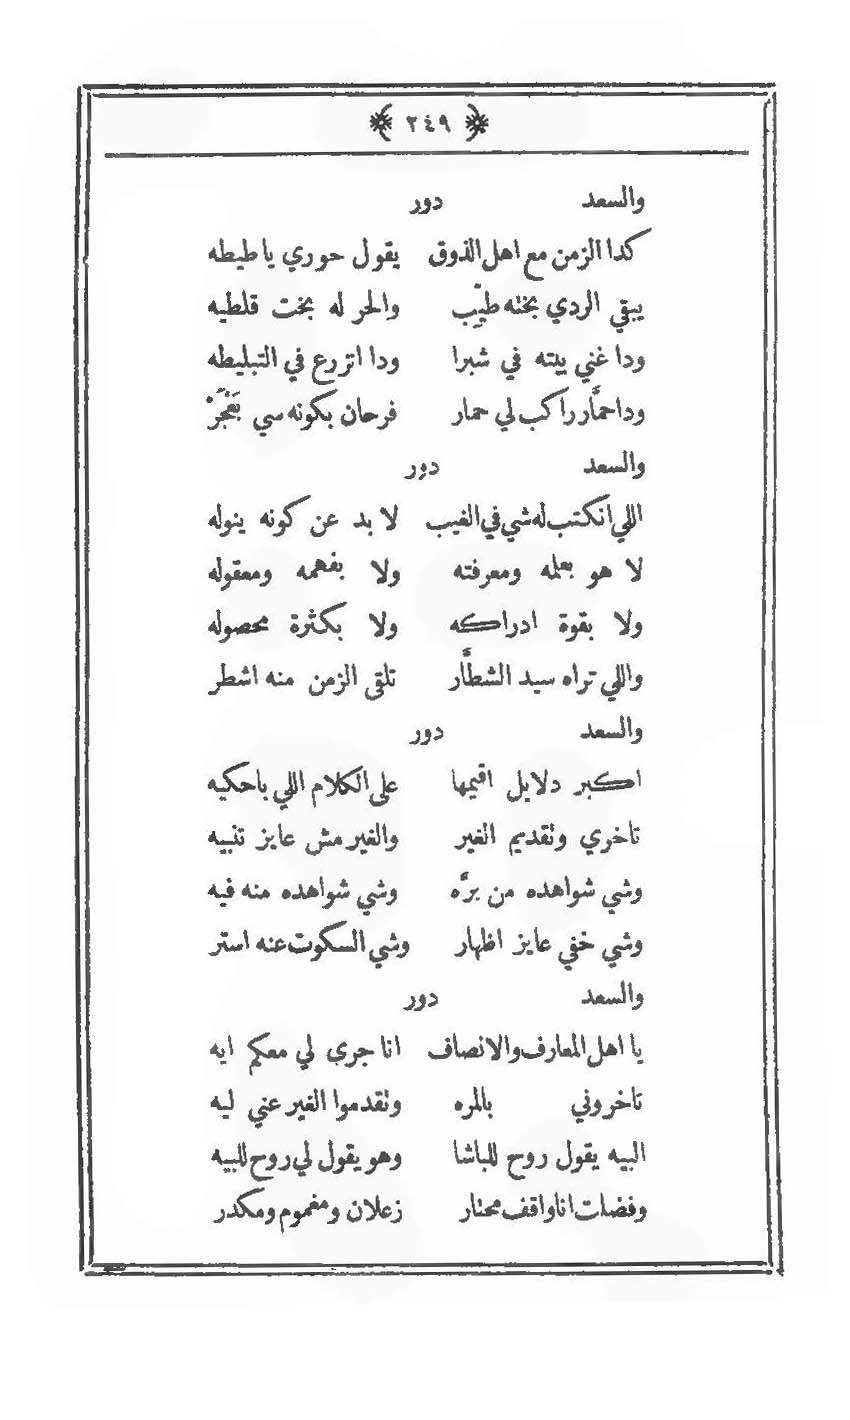 ﴿ ٢٤٩ ﴾
والسعد دور
كدا الزمن مع اهل الذوق يقول حوري يا طيطه
يبقي الردي بخته طيِّب والحر له بخت قلطيه
ودا غني بيته في شبرا ودا اتزرع في التبليطه
وداحمَّار راكب لي حمار فرحان بكونه سي بَغْجَرْ
والسعد دور
اللي انكتب له شي في الغيب لا بد عن كونه ينوله
لا هو بعلمه ومعرفته ولا بفهمه ومعقوله
ولا بقوة ادراكه ولا بكثرة محصوله
واللي تراه سيد الشطَّار تلقى الزمن منه اشطر
والسعد دور
اكبر دلايل اقيمها على الكلام اللي باحكيه
تاخري وتقديم الغير والغير مش عايز تنبيه
وشي شواهده من برَّه وشي شواهده منه فيه
وشي خفي عايز اظهار وشي السكوت عنه استر
والسعد دور
يا اهل المعارف والانصاف انا جرى لي معكم ايه
تاخروني بالمره وتقدموا الغير عني ليه
البيه يقول روح للباشا وهو يقول لي روح للبيه
وفضلت انا واقف محتار زعلان ومغموم ومكدر